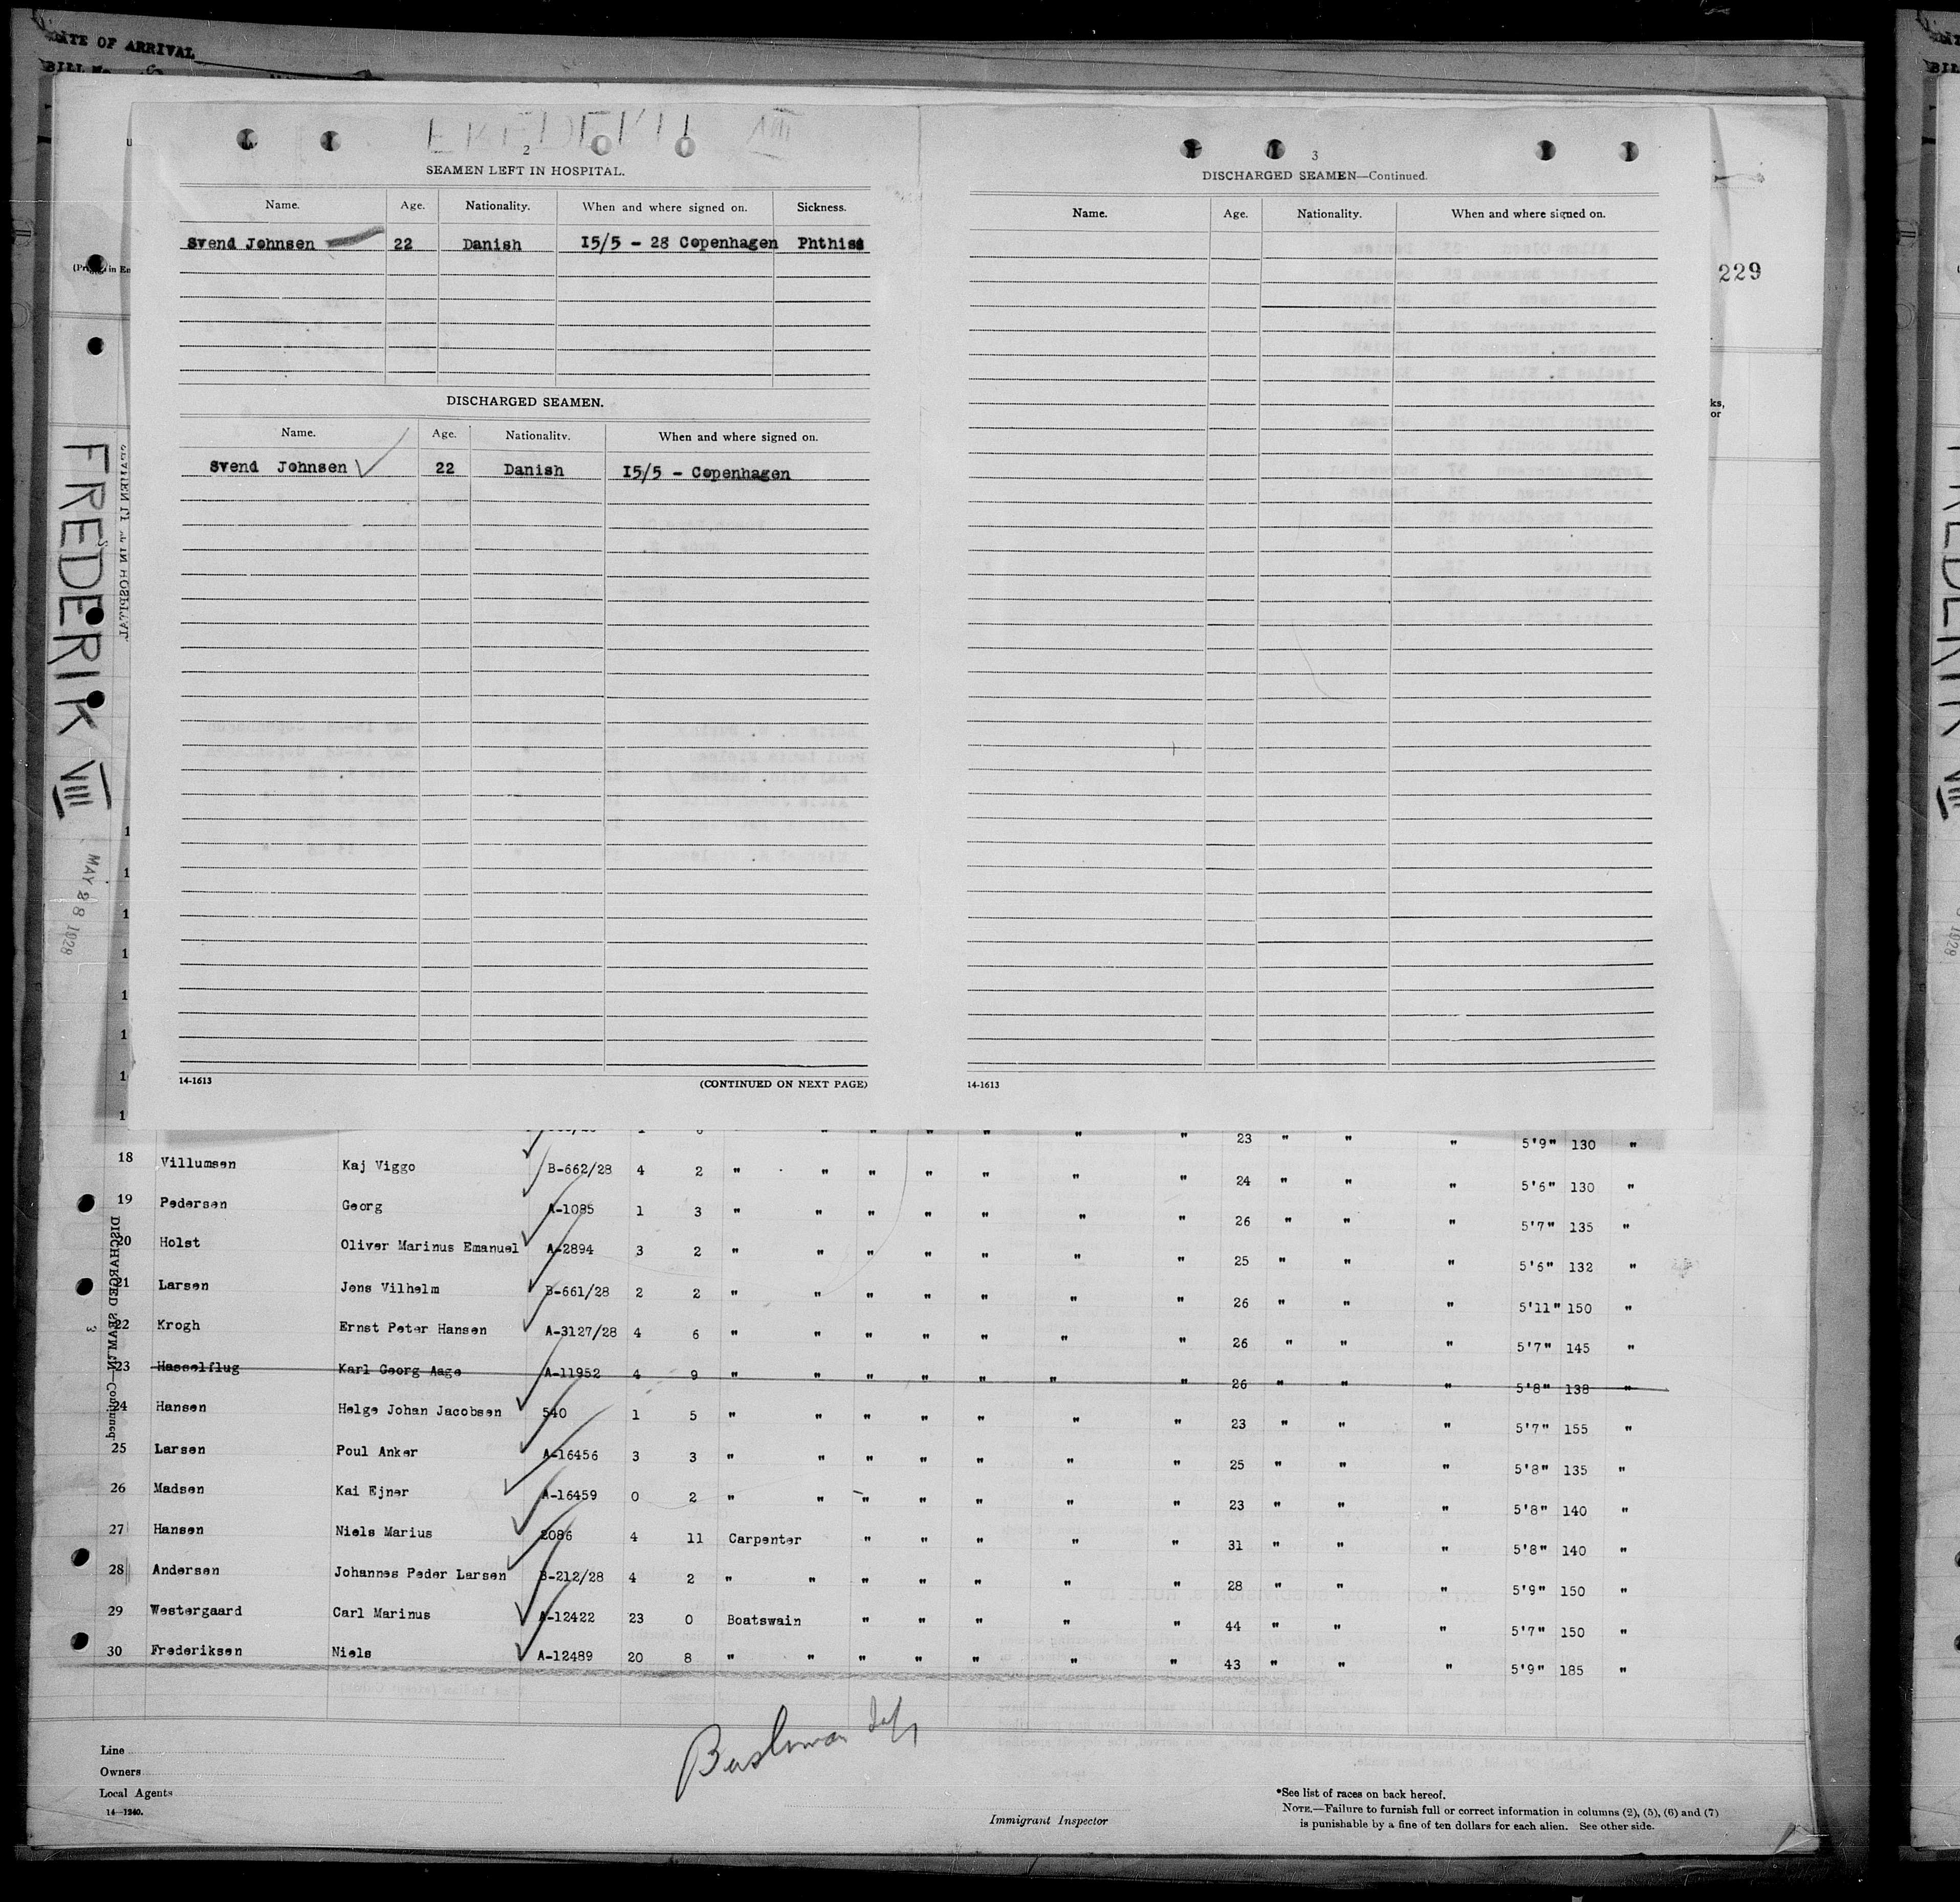 DATE OF ARRIVAL
FREDERIK VIII
2
SEAMEN LEFT IN HOSPITAL.
Name. Age. Nationality. When and where signed on. Sickness.
Svend Johnsen 22 Danish 15/5 - 28 Copenhagen Phthiss
DISCHARGED SEAMEN.
Name. Age. Nationality. When and where signed on.
Svend Johnsen 22 Danish 15/5 - Copenhagen
14-1613 (CONTINUED ON NEXT PAGE)
3
DISCHARGED SEAMEN—Continued.
Name. Age. Nationality. When and where signed on.
14-1613
229
ks,
or
FREDERIK VIII
MAY 28 1928
SEAMEN LEFT IN HOSPITAL
DISCHARGED SEAMEN—Continued.
3
23 " " " 5'9" 130 "
18 Villumsen Kaj Viggo B-662/28 4 2 " " " " " " " 24 " " " 5'6" 130 "
19 Pedersen Georg A-1085 1 3 " " " " " " " 26 " " " 5'7" 135 "
20 Holst Oliver Marinus Emanuel A-2894 3 2 " " " " " " " 25 " " " 5'6" 132 "
21 Larsen Jens Vilhelm B-661/28 2 2 " " " " " " " 26 " " " 5'11" 150 "
22 Krogh Ernst Peter Hansen A-3127/28 4 6 " " " " " " " 26 " " " 5'7" 145 "
23 Hasselflug Karl Georg Aage A-11952 4 9 " " " " " " " 26 " " " 5'8" 138 "
24 Hansen Helge Johan Jacobsen 540 1 5 " " " " " " " 23 " " " 5'7" 155 "
25 Larsen Poul Anker A-16456 3 3 " " " " " " " 25 " " " 5'8" 135 "
26 Madsen Kai Ejner A-16459 0 2 " " " " " " " 23 " " " 5'8" 140 "
27 Hansen Niels Marius 2086 4 11 Carpenter " " " " " 31 " " " 5'8" 140 "
28 Andersen Johannes Peder Larsen B-212/28 4 2 " " " " " " " 28 " " " 5'9" 150 "
29 Westergaard Carl Marinus A-12422 23 0 Boatswain " " " " " 44 " " " 5'7" 150 "
30 Frederiksen Niels A-12489 20 8 " " " " " " " 43 " " " 5'9" 185 "
Line
Owners
Local Agents
14—1240.
Immigrant Inspector
*See list of races on back hereof.
NOTE.—Failure to furnish full or correct information in columns (2), (5), (6) and (7)
is punishable by a fine of ten dollars for each alien. See other side.